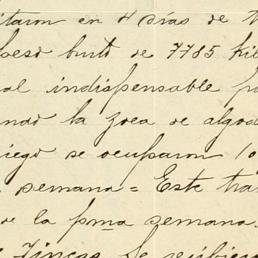 itaron en 4 días de t
peso buto de 7785 Kil
al indispensable pa
ando la zoca de algod
iego se ocuparon 10
semana = Este tra
de la pma semana.
Fincas Se recibie